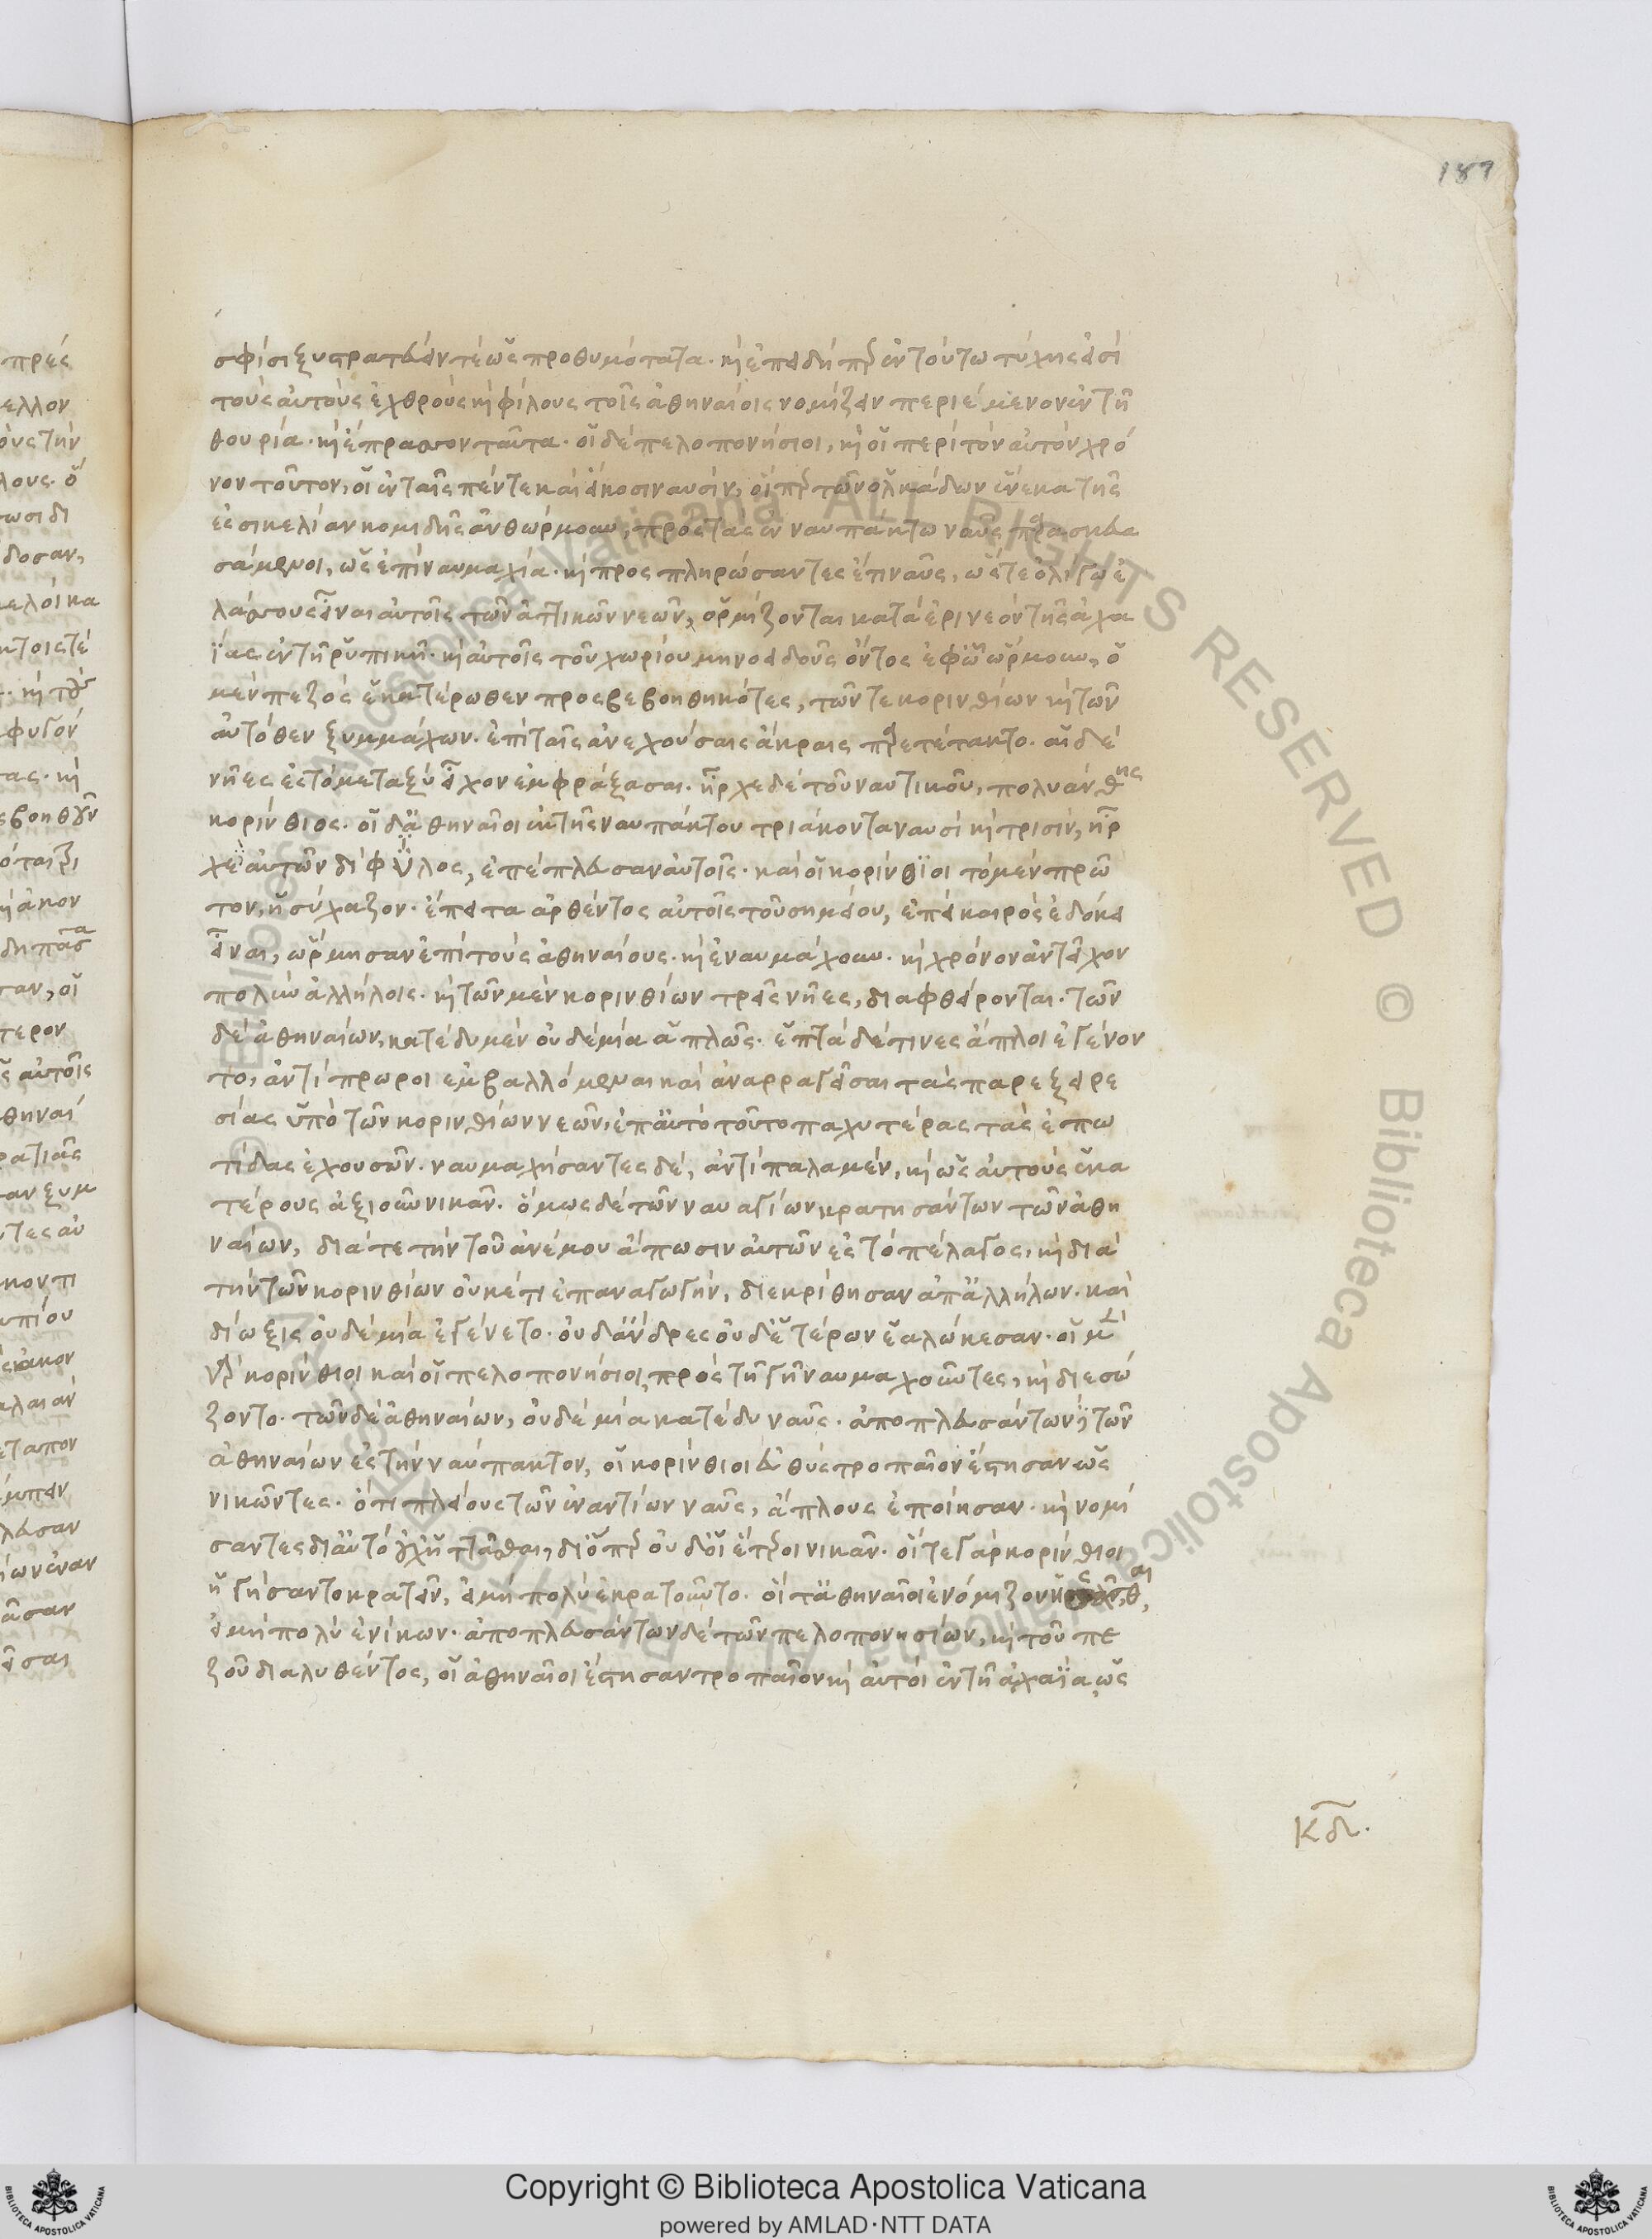 187
σφίσι ξυστρατεύειν τέ ὡς προθυμότατα. καὶ ἐπειδή περ ἐν τούτω τύχης εἰσὶ
τοὺς αὐτοὺς ἐχθροὺς καὶ φίλους τοῖς ἀθηναίοις νομίζειν περιέμενον ἐν τῆ
θουρία. καὶ ἔπρασσον ταῦτα. οἱ δὲ πελοπονήσιοι, καὶ οἱ περὶ τὸν αὐτὸν χρό
νον τοῦτον, οἱ ἐν ταῖς πέντε καὶ εἴκοσι ναυσίν, οἵπερ τῶν ὁλκάδων ἕνεκα τῆς
ἐς σικελίαν κομιδῆς ἀνθώρμουν, πρὸς τὰς ἐν ναυπάκτω ναῦς παρασκευα
σάμενοι, ὡς ἐπὶ ναυμαχία. καὶ προσπληρώσαντες ἔτι ναῦς, ὥστε ὀλίγω ἐ
λάσσους εἶναι αὐτοῖς τῶν ἀττικῶν νεῶν, ὁρμίζονται κατὰ ἐρινεὸν τῆς ἀχα
ΐας ἐν τῆ ῥυπικῆ. καὶ αὐτοῖς τοῦ χωρίου μηνοειδοῦς ὄντος ἐφ' ᾧ ὥρμουν, ὁ
μὲν πεζὸς ἑκατέρωθεν προσβεβοηθηκότες, τῶν τε κορινθίων καὶ τῶν
αὐτόθεν ξυμμάχων. ἐπὶ ταῖς ἀνεχούσαις ἄκραις παρετέτακτο. αἱ δὲ
νῆες ἐς τὸ μεταξὺ εἶχον ἐμφράξασαι. ἦρχε δὲ τοῦ ναυτικοῦ, πολυάνθης
κορίνθιος. οἱ δ' ἀθηναῖοι ἐκ τῆς ναυπάκτου τριάκοντα ναυσὶ καὶ τρισίν, ἦρ
χε δὲ αὐτῶν δίφιλος, ἐπέπλευσαν αὐτοῖς. καὶ οἱ κορίνθιοι τὸ μὲν πρῶ
τον, ἡσύχαζον. ἔπειτα ἀρθέντος αὐτοῖς τοῦ σημείου, ἐπεὶ καιρὸς ἐδόκει
εἶναι, ὥρμησαν ἐπὶ τοὺς ἀθηναίους. καὶ ἐναυμάχουν. καὶ χρόνον ἀντεῖχον
πολὺν ἀλλήλοις. καὶ τῶν μὲν κορινθίων τρεῖς νῆες, διαφθείρονται. τῶν
δὲ ἀθηναίων, κατέδυ μὲν οὐδεμία ἁπλῶς. ἑπτὰ δέ τινες ἄπλοι ἐγένον
το, ἀντίπρωροι ἐμβαλλόμεναι καὶ ἀναρραγεῖσαι τὰς παρεξειρε
σίας ὑπὸ τῶν κορινθίων νεῶν, ἐπ' αὐτὸ τοῦτο παχυτέρας τὰς ἐπω
τίδας ἐχουσῶν. ναυμαχήσαντες δέ, ἀντίπαλα μέν, καὶ ὡς αὐτοὺς ἑκα
τέρους ἀξιοῦν νικᾶν. ὅμως δὲ τῶν ναυαγίων κρατησάντων τῶν ἀθη
ναίων, διά τε τὴν τοῦ ἀνέμου ἄπωσιν αὐτῶν ἐς τὸ πέλαγος, καὶ διὰ
τὴν τῶν κορινθίων οὐκέτι ἐπαναγωγήν, διεκρίθησαν ἀπ' ἀλλήλων. καὶ
δίωξις οὐδεμία ἐγένετο. οὐδ' ἄνδρες οὐδ' ἑτέρων ἑαλώκεσαν. οἱ μὲν
γὰρ κορίνθιοι καὶ οἱ πελοπονήσιοι, πρὸς τῆ γῆ ναυμαχοῦντες, καὶ διεσώ
ζοντο. τῶν δὲ ἀθηναίων, οὐδεμία κατέδυ ναῦς. ἀποπλευσάντων δὲ τῶν
ἀθηναίων ἐς τὴν ναύπακτον, οἱ κορίνθιοι εὐθὺς τροπαῖον ἔστησαν ὡς
νικῶντες. ὅτι πλείους τῶν ἐναντίων ναῦς, ἄπλους ἐποίησαν. καὶ νομί
σαντες δι' αὐτὸ οὐχ ἡττᾶσθαι, δι' ὅπερ οὐδ' οἱ ἕτεροι νικᾶν. οἵ τε γὰρ κορίνθιοι
ἡγήσαντο κρατεῖν, εἰ μὴ πολὺ ἐκρατοῦντο. οἵ τ' ἀθηναῖοι ἐνόμιζον
εἰ μὴ πολὺ ἐνίκων. ἀποπλευσάντων δὲ τῶν πελοπονησίων, καὶ τοῦ πε
ζοῦ διαλυθέντος, οἱ ἀθηναῖοι ἔστησαν τροπαῖον καὶ αὐτοὶ ἐν τῆ ἀχαΐα, ὡς
κδ.
Copyright © Biblioteca Apostolica Vaticana
powered by AMLAD·NTT DATA